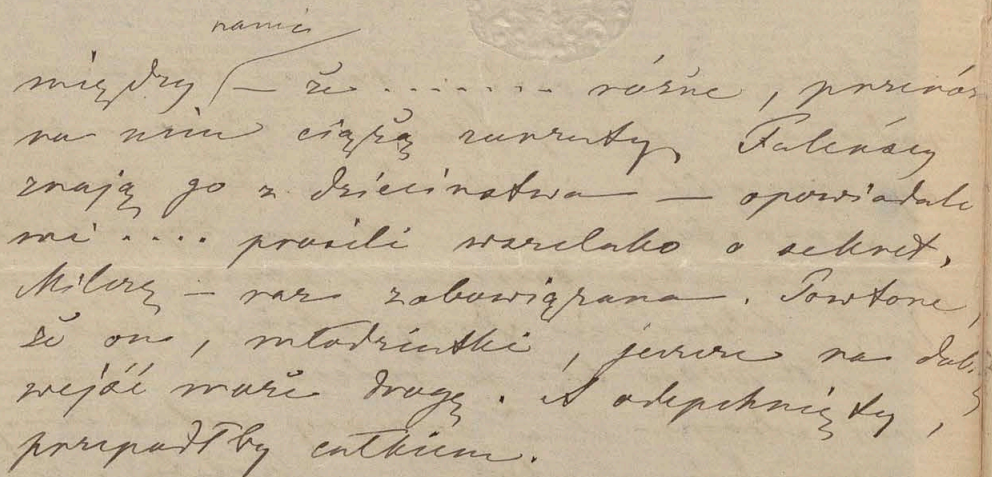 nami
między — że ........ różne, przeróż
na nim ciążą zarzuty, Faleńscy
znają go z dzieciństwa — opowiadali
mi .... prosili wszelako o sekret,
Milczę — raz zobowiązana. Powtórne,
że on, młodziutki, jeszcze na dobrą
wejść może drogę. A odepchnięty,
przepadłby całkiem.